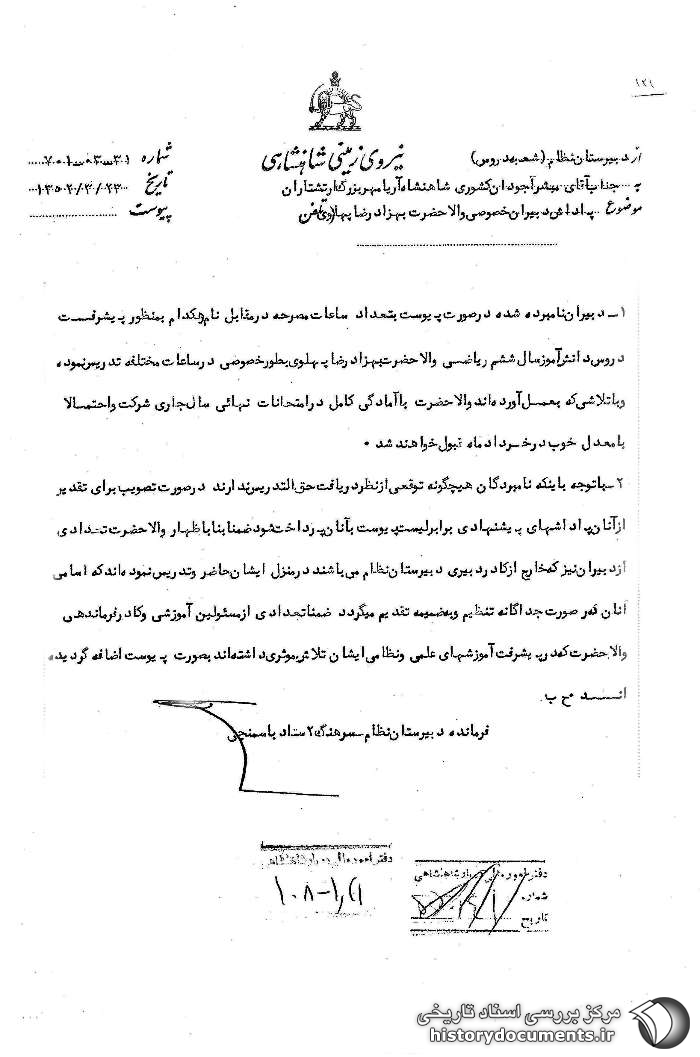 ۱۲۱
نیروی زمینی شاهنشاهی
از دبیرستان نظام (شعبه دروس)
به جناب آقای پیشر آجودان کشوری شاهنشاه آریامهر بزرگ ارتشتاران
موضوع پاداش دبیران خصوصی والاحضرت بهزاد رضا پهلوی
شماره ۷۰۱-۰۳-۳۱
تاریخ ۱۳۵۲/۲/۲۳
پیوست
۱ـ دبیران نامبرده شده در صورت پیوست بتعداد ساعات مصرحه در مقابل نام هیکدام بمنظور پیشرفت
دروس دانش آموز سال ششم ریاضی والاحضرت بهزاد رضا پهلوی بطور خصوصی در ساعات مختلفه تدریس نموده
و با تلاشی که بعمل آورده اند والاحضرت با آمادگی کامل در امتحانات نهائی سال جاری شرکت و احتمالا
با معدل خوب در خرداد ماه قبول خواهند شد ۰
۲ـ با توجه باینکه نامبردگان هیچگونه توقعی از نظر دریافت حق التدریس ندارند در صورت تصویب برای تقدیر
از آنان پاداشهای پیشنهادی برابر لیست پیوست بآنان پرداخت شود ضمنا بنا باظهار والاحضرت تعدادی
از دبیران نیز که خارج از کادر دبیری دبیرستان نظام می باشند در منزل ایشان حاضر و تدریس نموده اند که اسامی
آنان در صورت جداگانه تنظیم و بضمیمه تقدیم میگردد ضمنا تعدادی از مسئولین آموزشی و کادر فرماندهی
والاحضرت که در پیشرفت آموزشهای علمی و نظامی ایشان تلاش موثری داشته اند بصورت پیوست اضافه گردیده
انـد ح ب
فرمانده دبیرستان نظام ـ سرهنگ ۲ ستاد یاسمنچی
دفتر امور مالی دربار شاهنشاهی
دفتر امور مالی دربار شاهنشاهی
شماره
تاریخ
مرکز بررسی اسناد تاریخی
historydocuments.ir